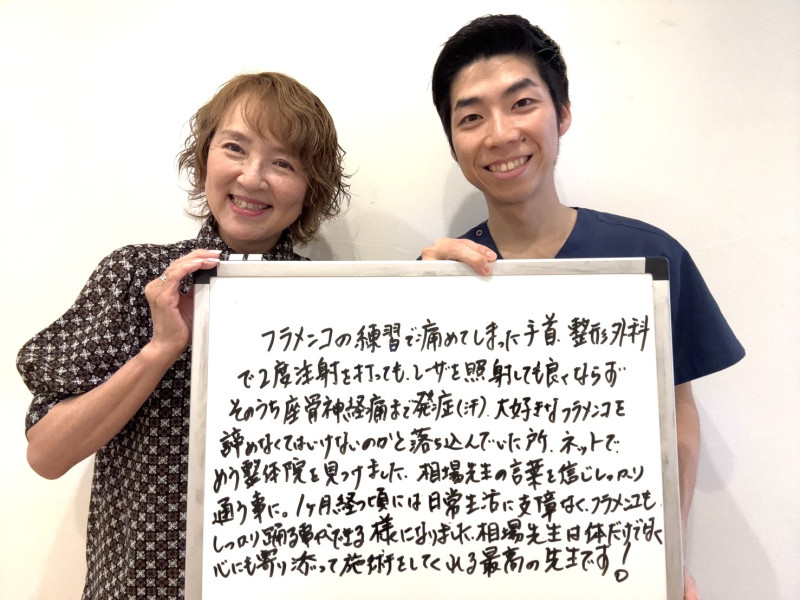 フラメンコの練習で痛めてしまった手首、整形外科
で2度注射を打っても、レーザを照射しても良くならず
そのうち座骨神経痛まで発症(汗)、大好きなフラメンコを
諦めなくてはいけないのかと落ち込んでいた所、ネットで
めう整体院を見つけました、相場先生の言葉を信じしっかり
通う事に。1ヶ月経つ頃には日常生活に支障なく、フラメンコも
しっかり踊る事ができる様になりました、相場先生は体だけでなく
心にも寄り添って施術をしてくれる最高の先生です!